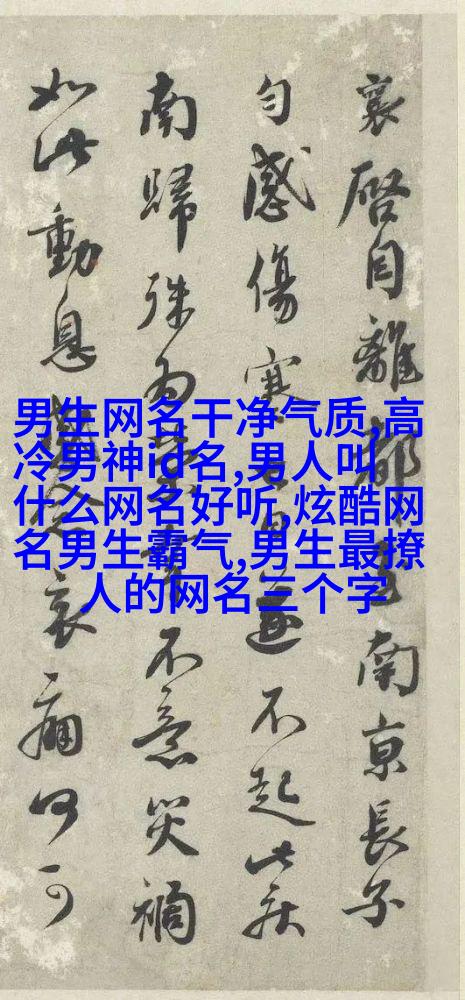 襄啓自離都南京長子
勻感傷寒不起此疾
南歸殊為不意災禍
如此動息哀痛何可
男生网名干净气质,高
冷男神id名,男人叫
什么网名好听,炫酷网
名男生霸气,男生最撩
人的网名三个字